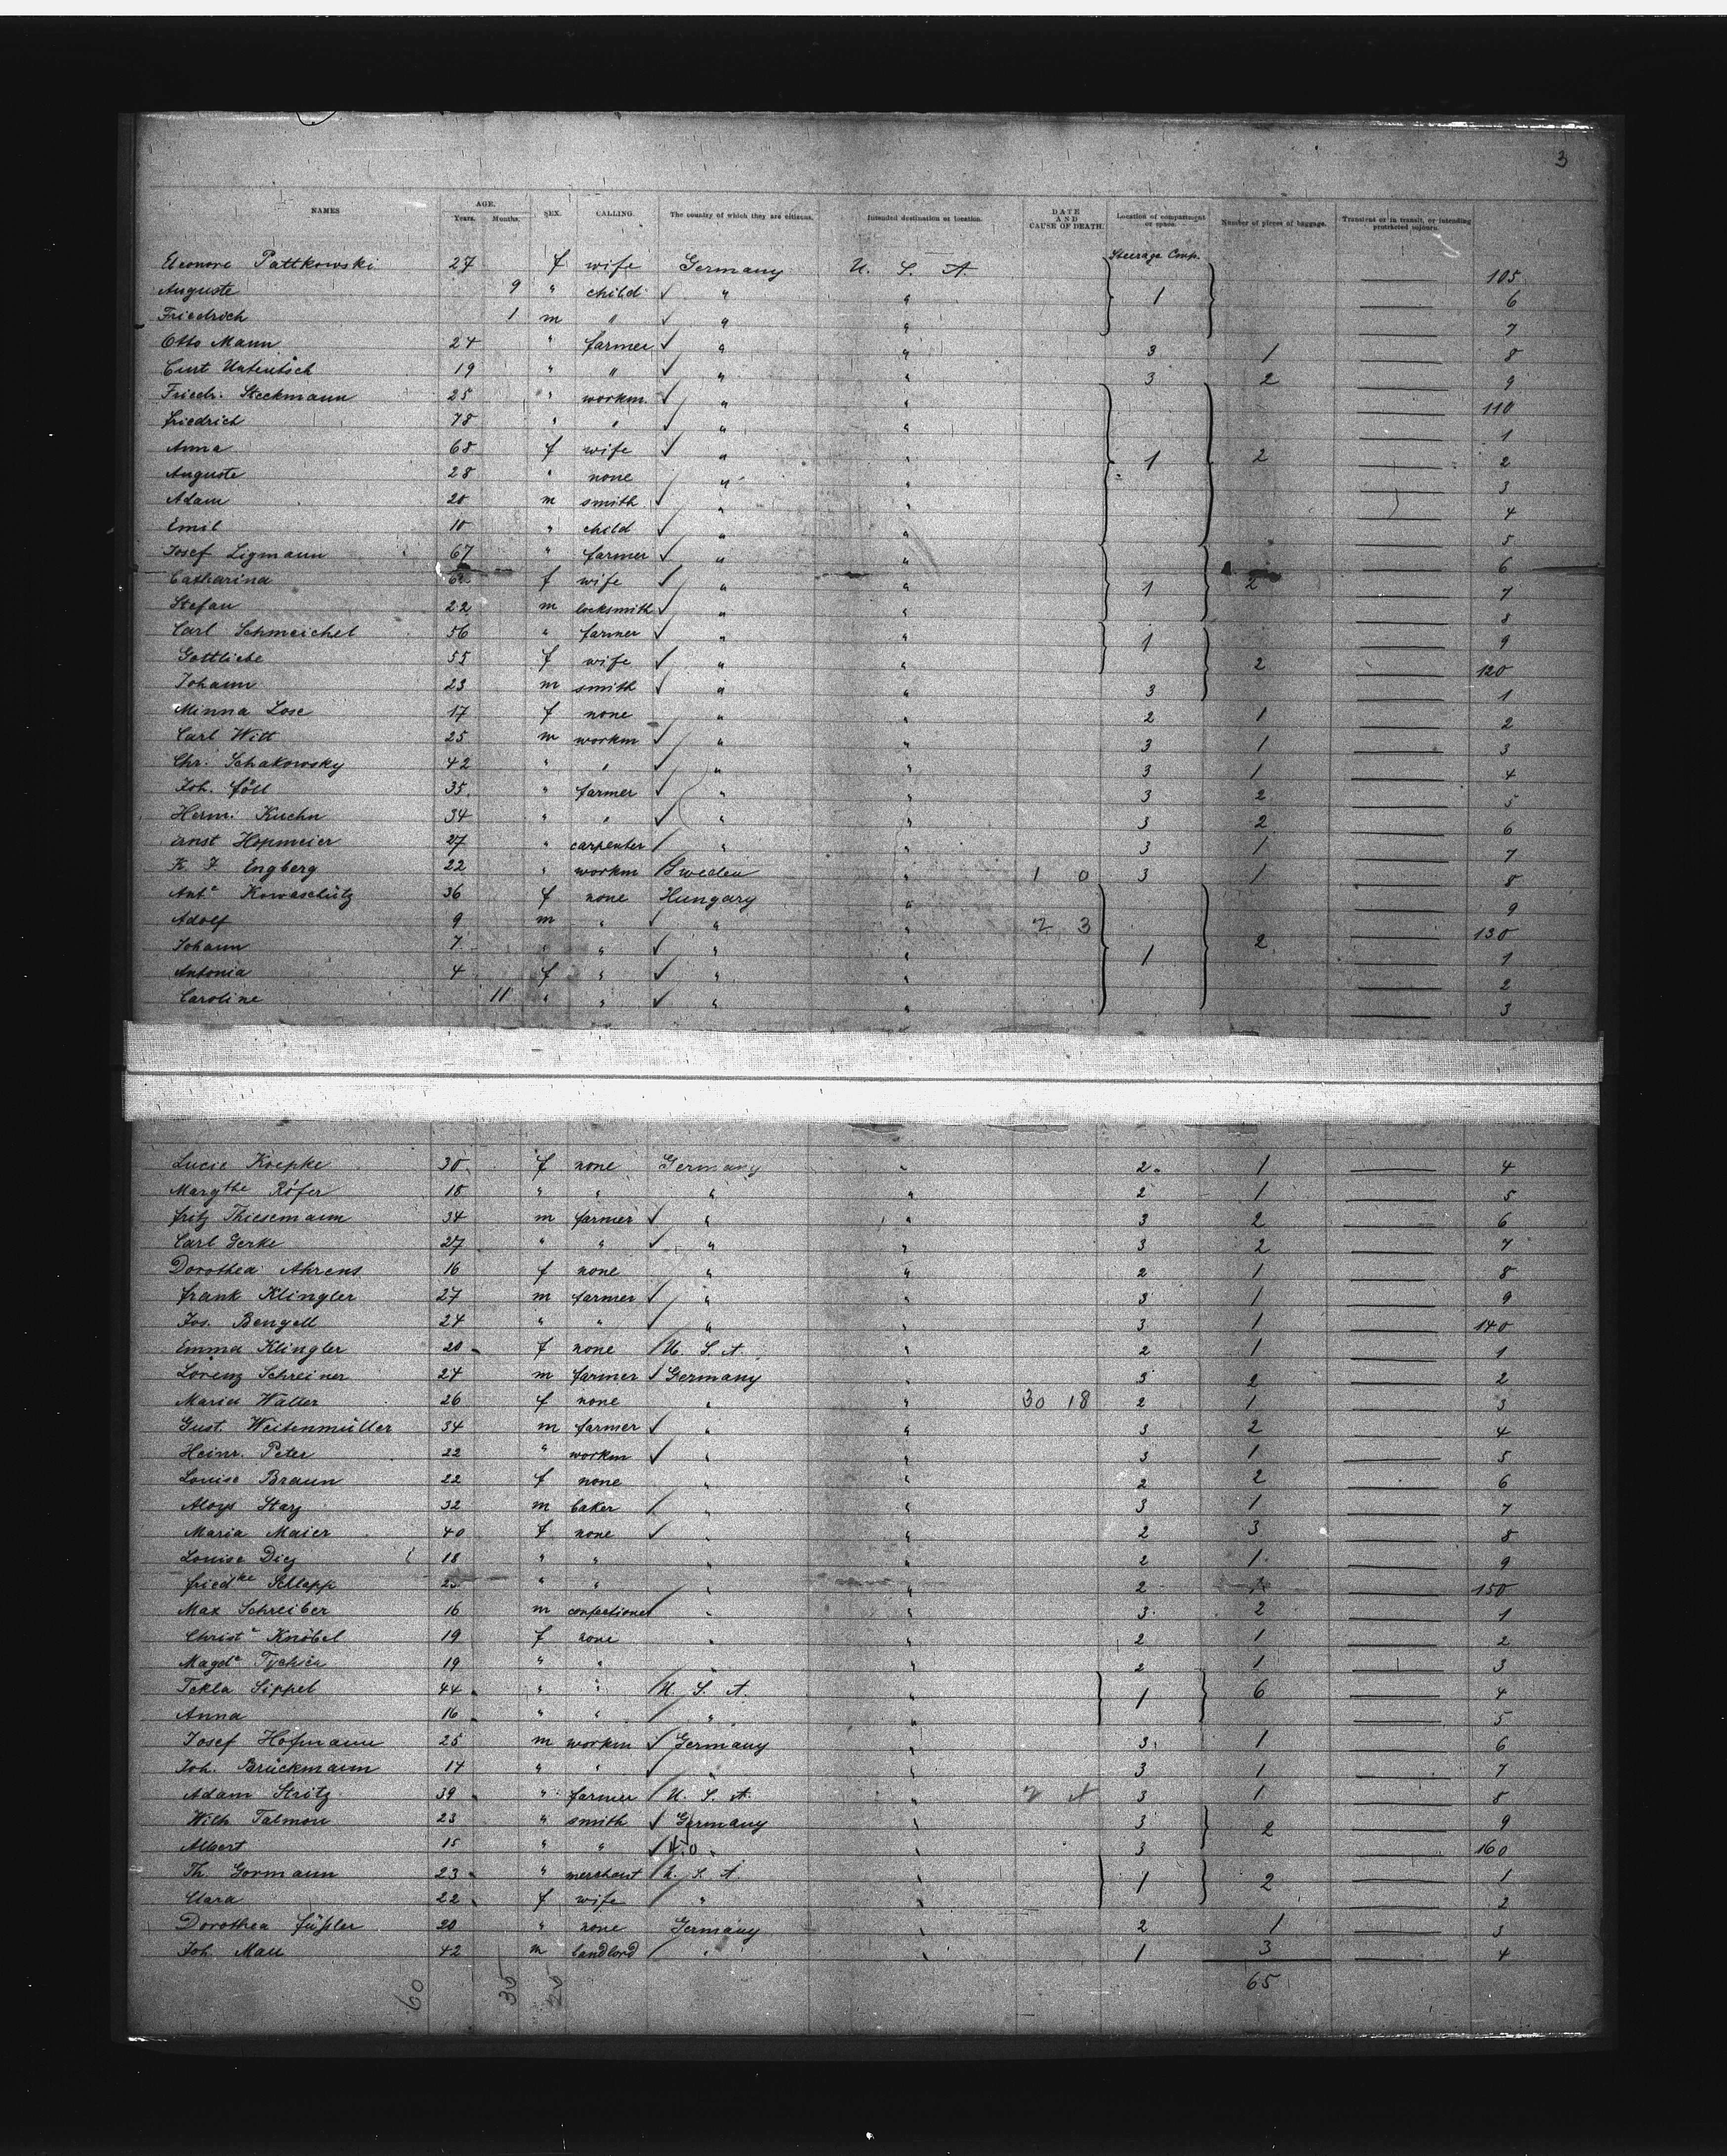 3
NAMES AGE. Years. Months. SEX. CALLING. The country of which they are citizens. Intended destination or location. DATE AND CAUSE OF DEATH. Location of compartment or space. Number of pieces of baggage. Transient or in transit, or intending protracted sojourn.
Steerage Comp.
Eleonore Pattkowski 27 f wife Germany U. S. A. 105
Auguste 9 " child " " 1 6
Friedrich 1 m " " " 7
Otto Mann 24 " farmer " " 3 1 8
Curt 19 " " " " 3 2 9
Friedr. Steckmann 25 " workm. " " 110
Friedrich 78 " " " " 1
Anna 68 f wife " " 1 2 2
Auguste 28 " none " " 3
Adam 20 m smith " " 4
Emil 10 " child " " 5
Josef Ligmann 67 " farmer " " 6
Catharina f wife " " 1 2 7
Stefan 22 m locksmith " " 8
Carl Schmeichel 56 " farmer " " 1 9
Gottliebe 55 f wife " " 2 120
Johann 23 m smith " " 3 1
Minna Lose 17 f none " " 2 1 2
Carl Witt 25 m workm " " 3 1 3
Chr. Schakowsky 42 " " " " 3 1 4
Joh. Föll 35 " farmer " " 3 2 5
Herm. Kuehn 34 " " " " 3 2 6
Ernst Hopmeier 27 " carpenter " " 3 1 7
F. Engberg 22 " workm Sweden " 1 0 3 1 8
Ant.a Kowaschütz 36 f none Hungary " 9
Adolf 9 m " " " 2 3 130
Johann 7 " " " " 1 2 1
Antonia 4 f " " " 2
Caroline 11 " " " " 3
Lucie Koepke 30 f none Germany " 2 1 4
Margthe Röfer 18 " " " " 2 1 5
Fritz Thiesemann 34 m farmer " " 3 2 6
Carl Gerke 27 " " " " 3 2 7
Dorothea Ahrens 16 f none " " 2 1 8
Frank Klingler 27 m farmer " " 3 1 9
Jos. Bengell 24 " " " " 3 1 140
Emma Klingler 20 f none U. S. A. " 2 1 1
Lorenz Schreiner 24 m farmer Germany " 3 2 2
Maria Walter 26 f none " " 30 18 2 1 3
Gust. Weitenmüller 34 m farmer " " 3 2 4
Heinr. Peter 22 " workm " " 3 1 5
Louise Braun 22 f none " " 2 2 6
Aloys Starz 32 m baker " " 3 1 7
Maria Maier 40 f none " " 2 3 8
Louise Diez 18 " " " " 2 1 9
Friedke Schlapp " " " " 2 150
Max Schreiber 16 m confectioner " " 3 2 1
Christe Knöbel 19 f none " " 2 1 2
Magda Tychsen 19 " " " " 2 1 3
Tekla Sippel 44 " " U. S. A. " 1 6 4
Anna 16 " " " " 5
Josef Hofmann 25 m workm Germany " 3 1 6
Joh. Brückmann 14 " " " " 3 1 7
Adam Stritz 39 " farmer U. S. A. " 3 1 8
Wilh Talmon 23 " smith Germany " 3 2 9
Albert 15 " " " " 3 160
Th. Gormann 23 " merchant U. S. A. " 1 2 1
Clara 22 f wife " " 2
Dorothea Füßler 20 " none Germany " 2 1 3
Joh. Mau 42 m landlord " " 1 3 4
65
60 35 25